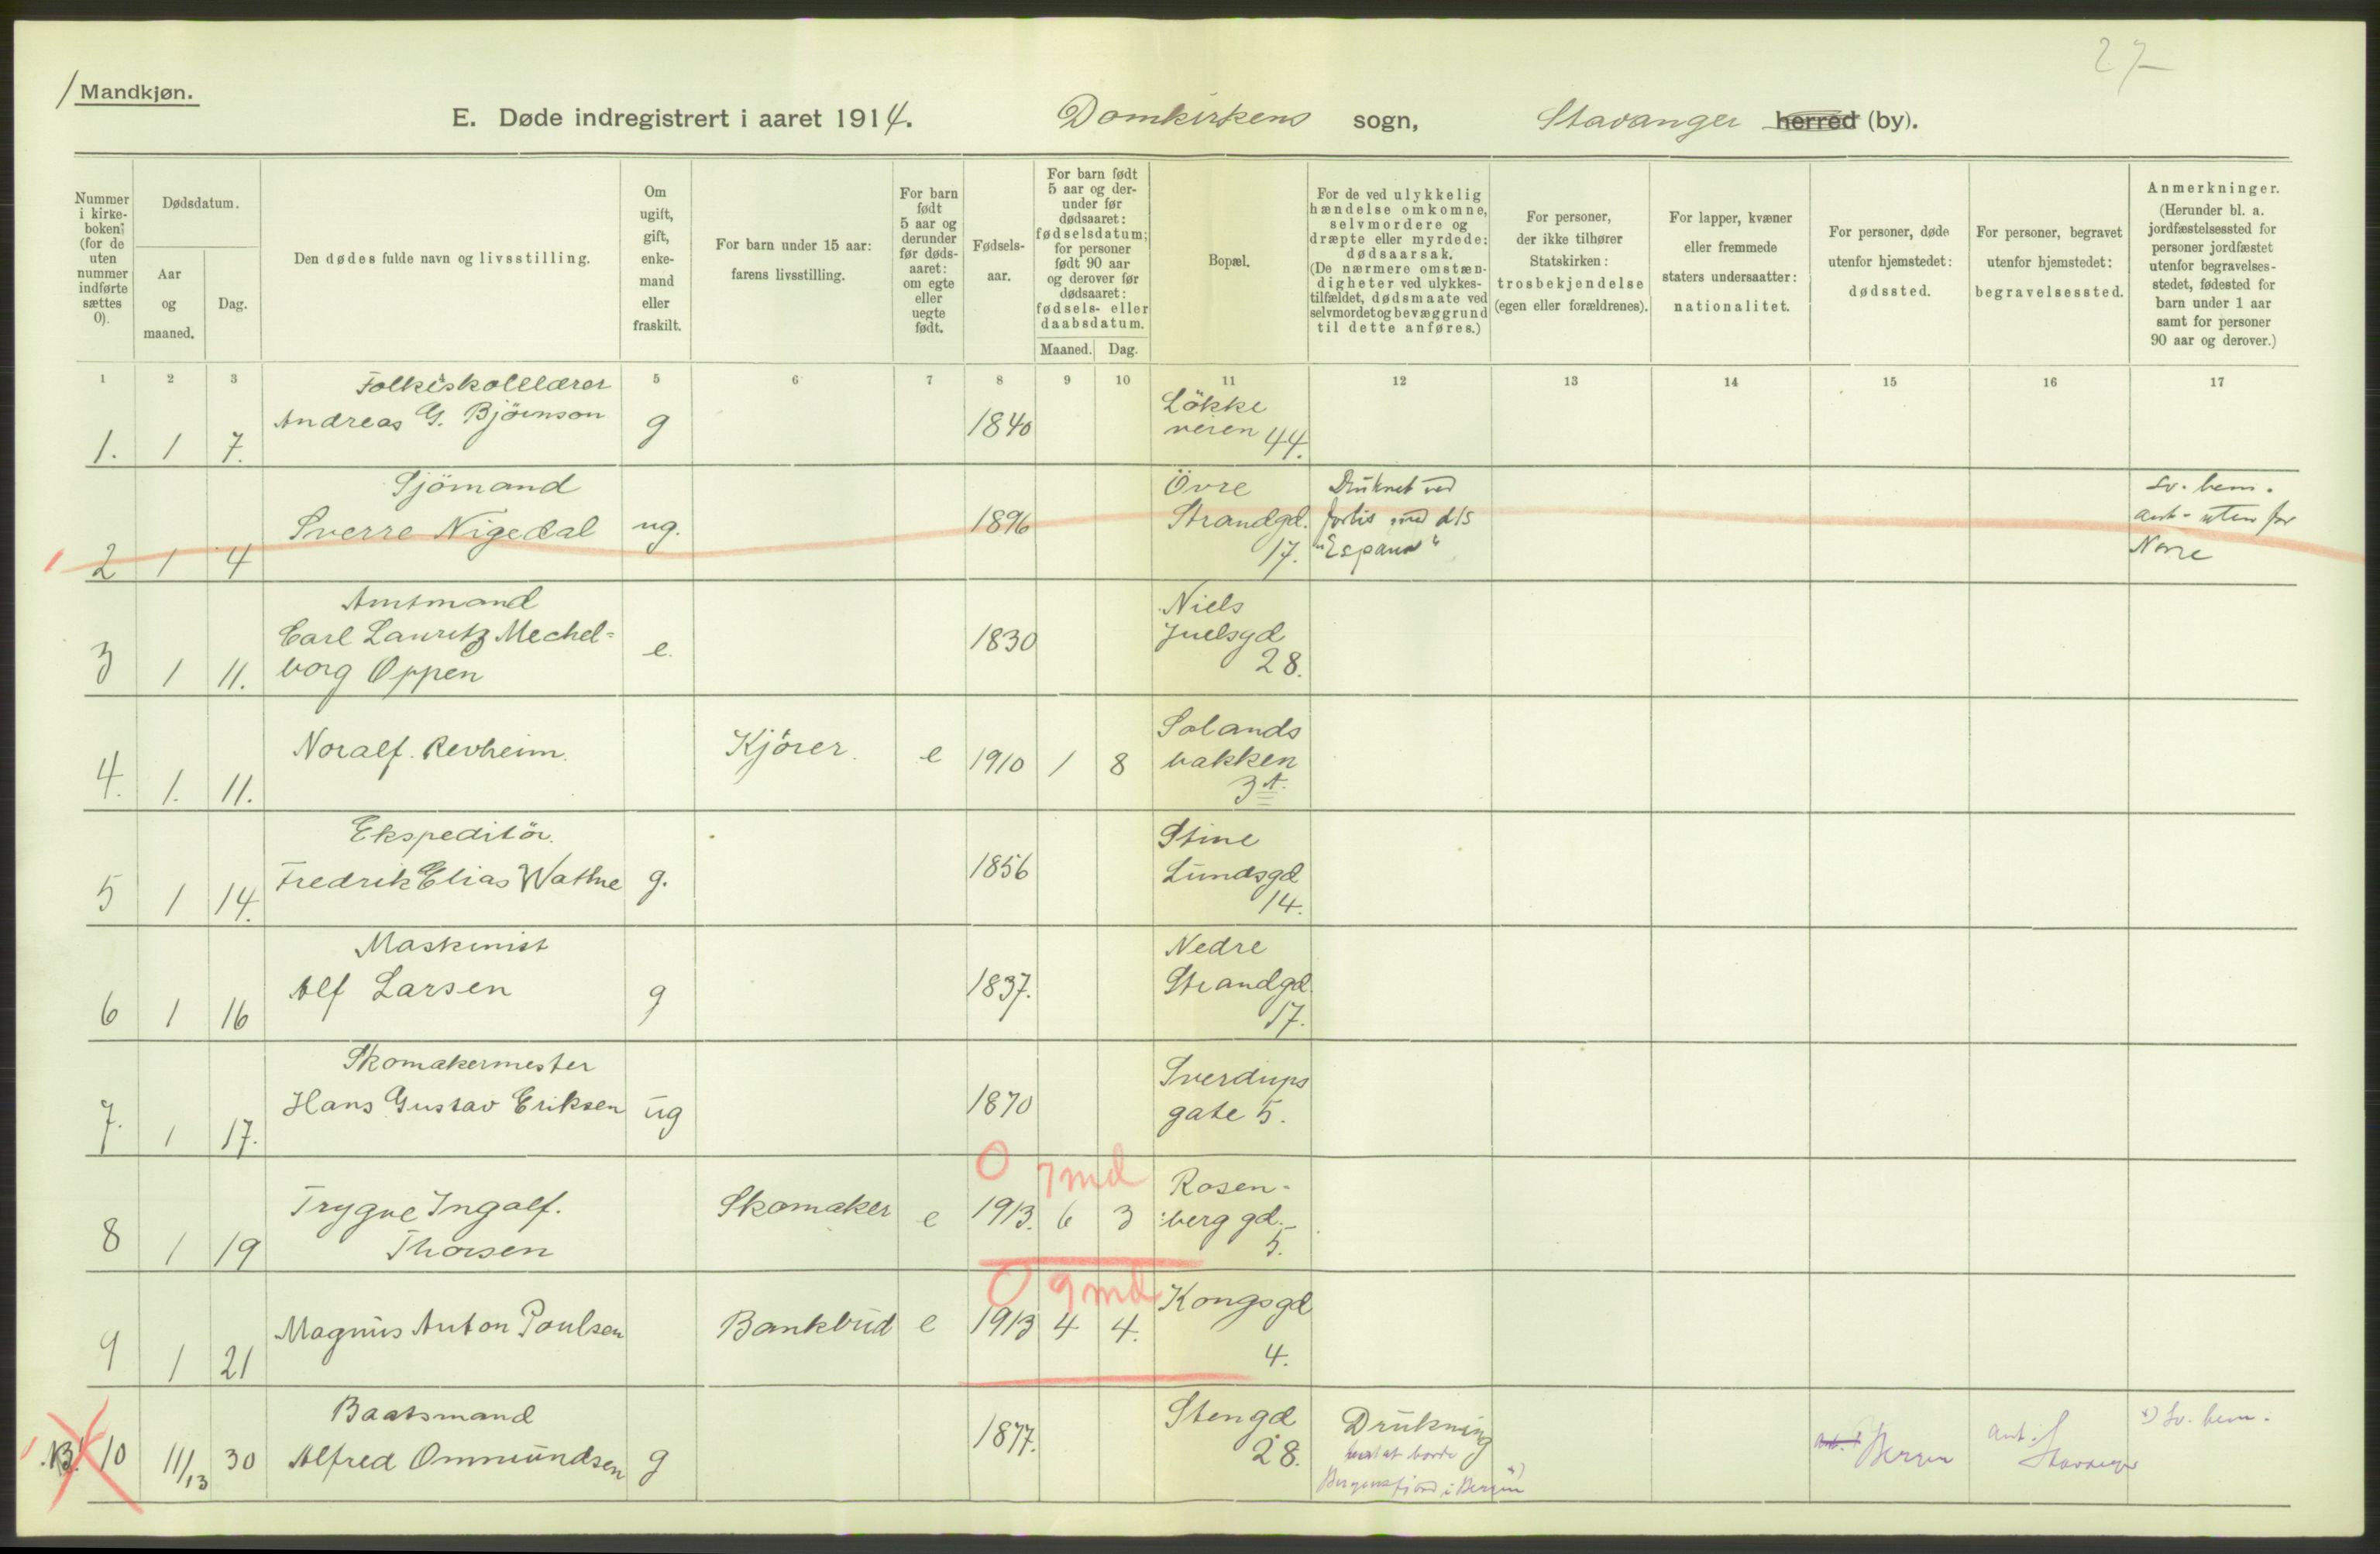 27
/ Mandkjøn.
E. Døde indregistrert i aaret 1914. Domkirkens sogn, Stavanger herred (by).
Nummer i kirkeboken (for de uten nummer indførte sættes 0).
Dødsdatum.
Aar og maaned.
Dag.
Den dødes fulde navn og livsstilling.
Om ugift, gift, enkemand eller fraskilt.
For barn under 15 aar: farens livsstilling.
For barn født 5 aar og derunder før dødsaaret: om egte eller uegte født.
Fødselsaar.
For barn født 5 aar og derunder før dødsaaret: fødselsdatum; for personer født 90 aar og derover før dødsaaret: fødsels- eller daabsdatum.
Maaned. Dag.
Bopæl.
For de ved ulykkelig hændelse omkomne, selvmordere og dræpte eller myrdede: dødsaarsak. (De nærmere omstændigheter ved ulykkestilfældet, dødsmaate ved selvmordet og bevæggrund til dette anføres.)
For personer, der ikke tilhører Statskirken: trosbekjendelse (egen eller forældrenes).
For lapper, kvæner eller fremmede staters undersaatter: nationalitet.
For personer, døde utenfor hjemstedet: dødssted.
For personer, begravet utenfor hjemstedet: begravelsessted.
Anmerkninger. (Herunder bl. a. jordfæstelsessted for personer jordfæstet utenfor begravelsesstedet, fødested for barn under 1 aar samt for personer 90 aar og derover.)
1 2 3 5 6 7 8 9 10 11 12 13 14 15 16 17
Folkeskolelærer Løkke
1. 1 7. Andreas G. Bjørnson g 1840 veien 44.
Sjömand Övre Druknet ved Sv. bem.
2 1 4 Sverre Nigedal ug. 1896 Strandgd. forlis med d/s ant. utenfor
17. "Espana" Norge
Amtmand Niels
3 1 11. Carl Lauritz Mechel= e. 1830 Juelsgd
borg Oppen 28.
Solands
4. 1. 11. Noralf. Revheim. Kjörer. e 1910 1 8 bakken
3 A.
Ekspeditör. Stine
5 1 14. Fredrik Elias Wathne g. 1856 Lundsgd
14.
Maskinist Nedre
6 1 16 Alf Larsen g 1837. Strandgd.
17.
Skomakermester Sverdrups
7. 1 17. Hans Gustav Eriksen ug 1870 gate 5.
0 7 md Rosen-
8 1 19 Trygve Ingolf. Skomaker e 1913. 6 3 berg gd.
Thorsen 5.
0 9 md Kongsgd
9 1 21 Magnus Anton Poulsen Bankbud e 1913 4 4.
4.
Baatsmand Stengd Drukning x) Sv. bem.
10 11/13 30 Alfred Ommundsen g 1877. 28. Bergensfjord i Bergen x) Bergen ant. Stavanger